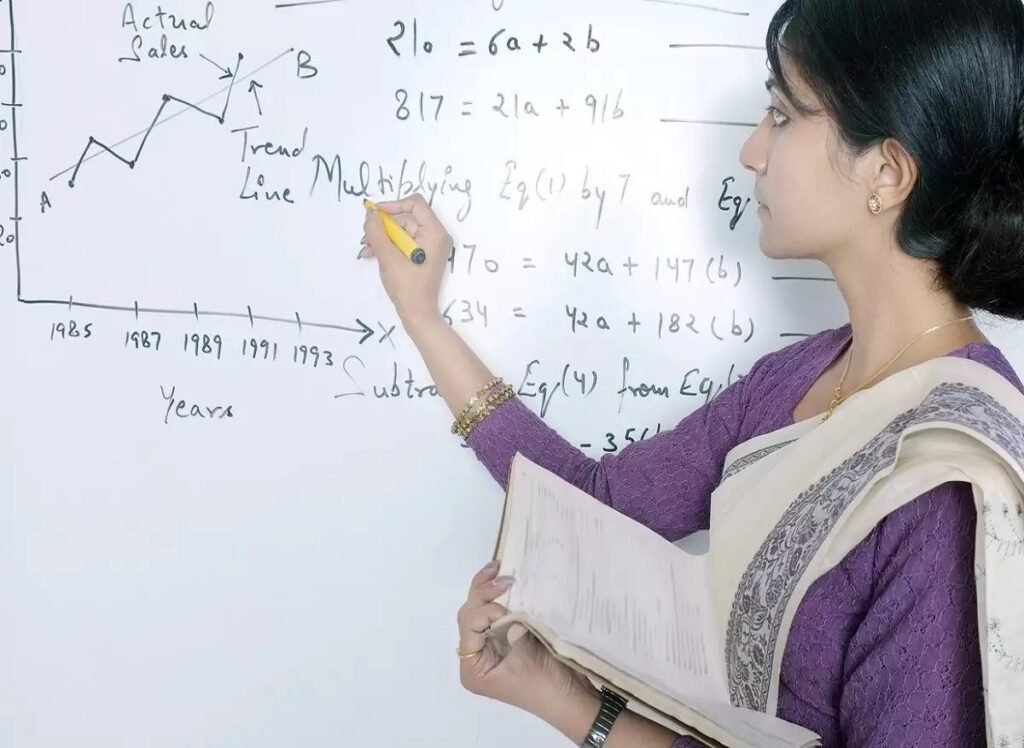 Actual
Sales
B
Trend
Line
A
20
1985 1987 1989 1991 1993
X
Years
210 = 6a + 2b
817 = 21a + 91b
Multiplying Eq(1) by 7 and Eq
470 = 42a + 147(b)
634 = 42a + 182(b)
Eq(4) from Eq(
- 35(